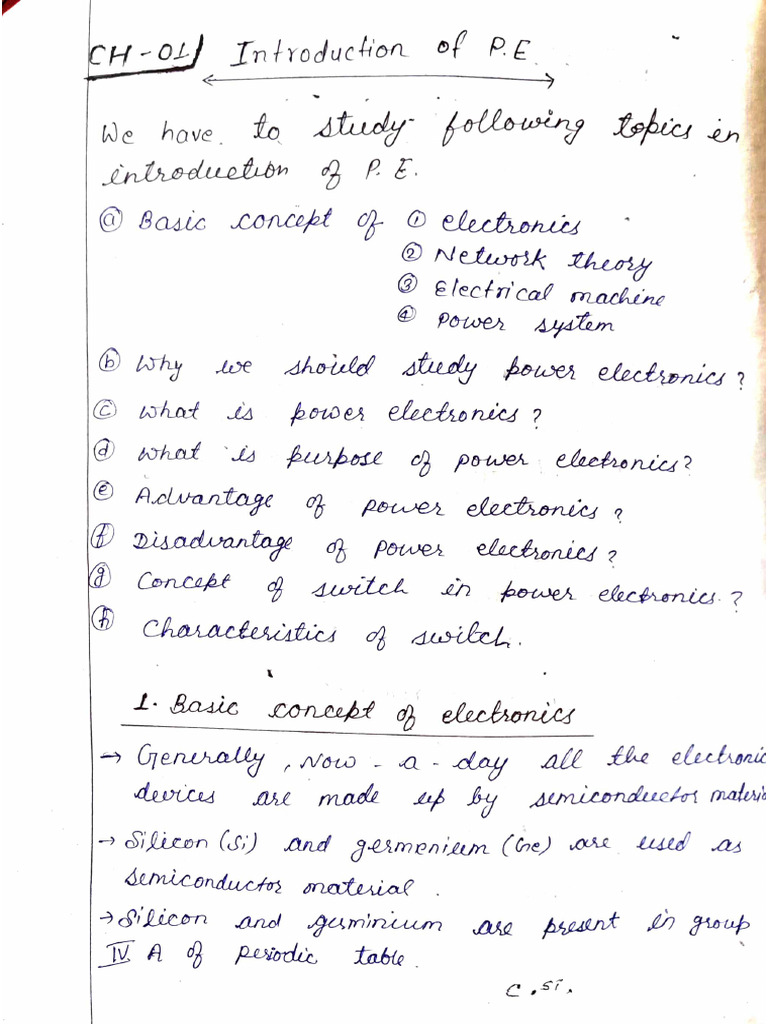 CH-01 Introduction of P.E
We have to study following topics in
introduction of P.E.
(a) Basic concept of (1) electronics
(2) Network theory
(3) Electrical machine
(4) Power system
(b) Why we should study power electronics?
(c) What is power electronics?
(d) What is purpose of power electronics?
(e) Advantage of power electronics?
(f) Disadvantage of power electronics?
(g) Concept of switch in power electronics.?
(h) Characteristics of switch.
1. Basic concept of electronics
→ Generally, Now-a-day all the electronic
devices are made up by semiconductor materia
→ Silicon (Si) and germenium (Ge) are used as
semiconductor material.
→ Silicon and germinium are present in group
IV A of periodic table.
C. Si.